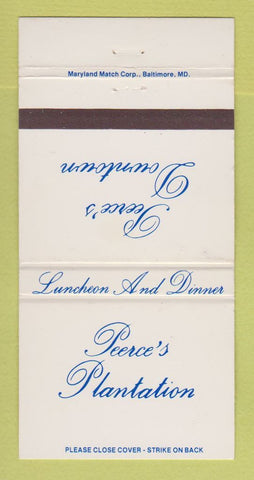 Maryland Match Corp., Baltimore, MD.
Peerce's
Downtown
Luncheon And Dinner
Peerce's
Plantation
PLEASE CLOSE COVER - STRIKE ON BACK